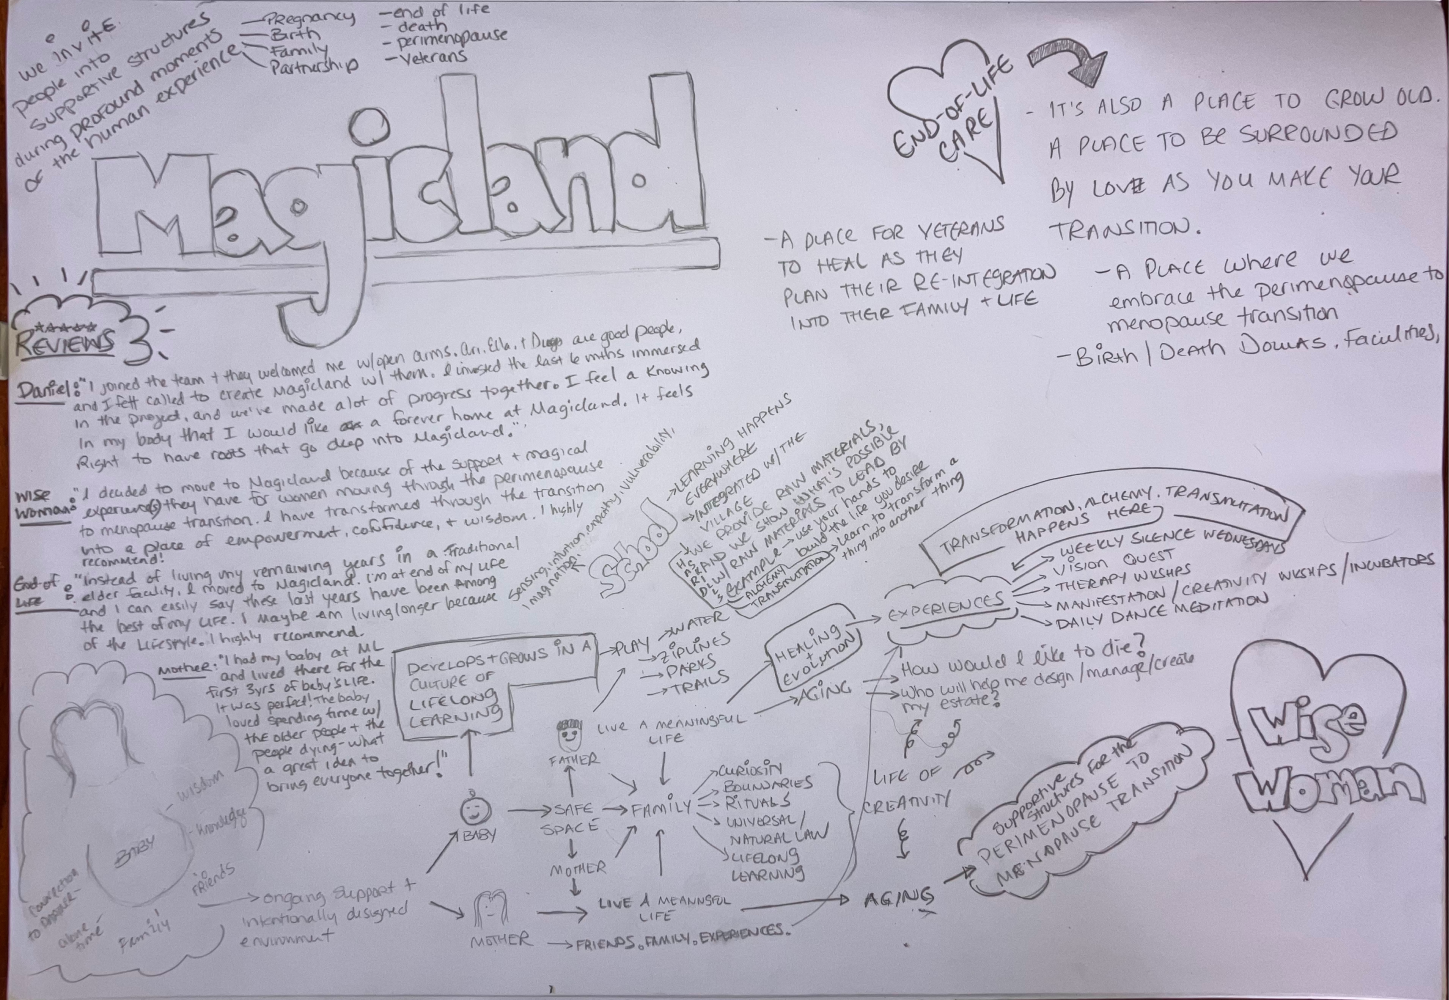 We invite
people into
supportive structures
during profound moments
of the human experience
Pregnancy
Birth
Family
Partnership
- end of life
- death
- perimenopause
- Veterans
Magicland
END-OF-LIFE
CARE
- IT'S ALSO A PLACE TO GROW OLD.
A PLACE TO BE SURROUNDED
BY LOVE AS YOU MAKE YOUR
TRANSITION.
- A PLACE FOR VETERANS
TO HEAL AS THEY
PLAN THEIR RE-INTEGRATION
INTO THEIR FAMILY + LIFE
- A PLACE where we
embrace the perimenopause to
menopause transition
- Birth/Death Doulas, Facilities,
REVIEWS
Daniel: "I joined the team + they welcomed me w/open arms. Ari, Ella, + Diego are good people,
and I felt called to create Magicland w/ them. I invested the last 6 mths immersed
in the project, and we've made a lot of progress together. I feel a knowing
in my body that I would like a forever home at Magicland. It feels
Right to have roots that go deep into Magicland."
Wise Woman: "I decided to move to Magicland because of the support + magical
experiences they have for women moving through the perimenopause
to menopause transition. I have transformed through the transition
into a place of empowerment, confidence, + wisdom. I highly
recommend!
End of Life: "Instead of living my remaining years in a Traditional
elder facility, I moved to Magicland. I'm at end of my life
and I can easily say these last years have been Among
the best of my life. I Maybe am living longer because
of the lifestyle. I highly recommend.
Mother: "I had my baby at ML
and lived there for the
first 3yrs of baby's LIFE.
It was perfect! The baby
loved spending time w/
the older people + the
people dying - what
a great idea to
bring everyone together!"
sensing, intuition, empathy, vulnerability,
Imagination
School
LEARNING HAPPENS
EVERYWHERE
INTEGRATED W/THE
VILLAGE
WE PROVIDE RAW MATERIALS,
AND WE SHOW WHAT'S POSSIBLE
W/ RAW MATERIALS TO LEAD BY
EXAMPLE
use your hands to
build the life you desire
ALCHEMY
TRANSMUTATION
Learn to transform a
thing into another thing
TRANSFORMATION, ALCHEMY, TRANSMUTATION
HAPPENS HERE
EXPERIENCES
WEEKLY SILENCE WEDNESDAYS
VISION QUEST
THERAPY WKSHPS
MANIFESTATION/CREATIVITY WKSHPS/INCUBATORS
DAILY DANCE MEDITATION
DEVELOPS + GROWS IN A
CULTURE OF
LIFELONG
LEARNING
PLAY
WATER
ZIPLINES
PARKS
TRAILS
HEALING
+
EVOLUTION
AGING
How would I like to die?
Who will help me design/manage/create
my estate?
LIFE OF
CREATIVITY
FATHER
LIVE A MEANINGFUL
LIFE
BABY
SAFE
SPACE
FAMILY
CURIOSITY
BOUNDARIES
RITUALS
UNIVERSAL/
NATURAL LAW
LIFELONG
LEARNING
MOTHER
LIVE A MEANINGFUL
LIFE
AGING
Supportive
Structures for the
PERIMENOPAUSE TO
MENOPAUSE TRANSITION
Wise
Woman
MOTHER
FRIENDS, FAMILY, EXPERIENCES.
wisdom
knowledge
BABY
friends
Family
alone
time
connection
to
ongoing support +
intentionally designed
environment